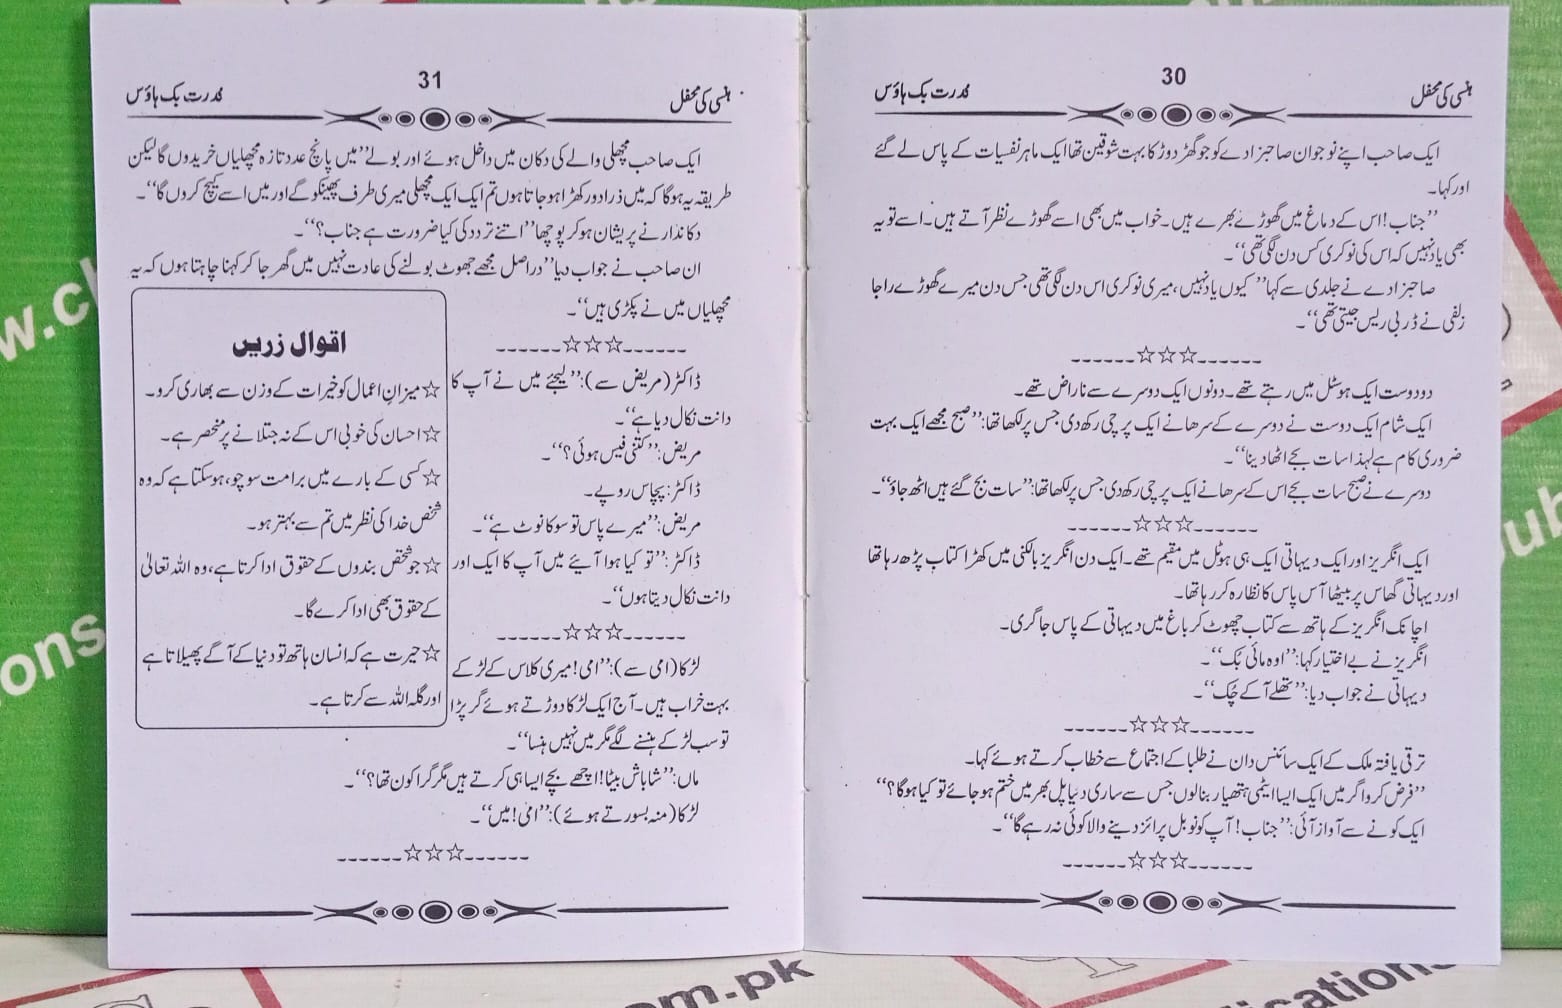 30
ہنسی کی محفل
قدرت بک ہاؤس
ایک صاحب اپنے نوجوان صاحبزادے کو جو گھڑ دوڑ کا بہت شوقین تھا ایک ماہر نفسیات کے پاس لے گئے
اور کہا۔
’’جناب! اس کے دماغ میں گھوڑے بھرے ہیں۔ خواب میں بھی اسے گھوڑے نظر آتے ہیں۔ اسے تو یہ
بھی یاد نہیں کہ اس کی نوکری کس دن لگی تھی‘‘۔
صاحبزادے نے جلدی سے کہا’’ کیوں یاد نہیں، میری نوکری اس دن لگی تھی جس دن میرے گھوڑے راجا
زلفی نے ڈربی ریس جیتی تھی‘‘۔
------☆☆☆------
دو دوست ایک ہوسٹل میں رہتے تھے۔ دونوں ایک دوسرے سے ناراض تھے۔
ایک شام ایک دوست نے دوسرے کے سرھانے ایک پرچی رکھ دی جس پر لکھا تھا:’’صبح مجھے ایک بہت
ضروری کام ہے لہذا سات بجے اٹھا دینا‘‘۔
دوسرے نے صبح سات بجے اس کے سرھانے ایک پرچی رکھ دی جس پر لکھا تھا:’’سات بج گئے ہیں اٹھ جاؤ‘‘۔
------☆☆☆------
ایک انگریز اور ایک دیہاتی ایک ہی ہوٹل میں مقیم تھے۔ ایک دن انگریز بالکنی میں کھڑا کتاب پڑھ رہا تھا
اور دیہاتی گھاس پر بیٹھا آس پاس کا نظارہ کر رہا تھا۔
اچانک انگریز کے ہاتھ سے کتاب چھوٹ کر باغ میں دیہاتی کے پاس جا گری۔
انگریز نے بے اختیار کہا:’’اوہ مائی بُک‘‘۔
دیہاتی نے جواب دیا:’’تھلے آ کے چُک‘‘۔
------☆☆☆------
ترقی یافتہ ملک کے ایک سائنس دان نے طلبا کے اجتماع سے خطاب کرتے ہوئے کہا۔
’’فرض کرو اگر میں ایک ایسا ایٹمی ہتھیار بنا لوں جس سے ساری دنیا پل بھر میں ختم ہو جائے تو کیا ہوگا؟‘‘
ایک کونے سے آواز آئی:’’جناب! آپ کو نوبل پرائز دینے والا کوئی نہ رہے گا‘‘۔
------☆☆☆------
31
ہنسی کی محفل
قدرت بک ہاؤس
ایک صاحب مچھلی والے کی دکان میں داخل ہوئے اور بولے’’میں پانچ عدد تازہ مچھلیاں خریدوں گا لیکن
طریقہ یہ ہوگا کہ میں ذرا دور کھڑا ہو جاتا ہوں تم ایک ایک مچھلی میری طرف پھینکو گے اور میں اسے کیچ کروں گا‘‘۔
دکاندار نے پریشان ہو کر پوچھا’’اتنے تردد کی کیا ضرورت ہے جناب؟‘‘۔
ان صاحب نے جواب دیا’’دراصل مجھے جھوٹ بولنے کی عادت نہیں میں گھر جا کر کہنا چاہتا ہوں کہ یہ
مچھلیاں میں نے پکڑی ہیں‘‘۔
------☆☆☆------
ڈاکٹر (مریض سے):’’لیجئے میں نے آپ کا
دانت نکال دیا ہے‘‘۔
مریض:’’کتنی فیس ہوئی؟‘‘۔
ڈاکٹر: پچاس روپے۔
مریض:’’میرے پاس تو سو کا نوٹ ہے‘‘۔
ڈاکٹر:’’تو کیا ہوا آیئے میں آپ کا ایک اور
دانت نکال دیتا ہوں‘‘۔
------☆☆☆------
لڑکا (امی سے):’’امی! میری کلاس کے لڑکے
بہت خراب ہیں۔ آج ایک لڑکا دوڑتے ہوئے گر پڑا
تو سب لڑکے ہنسنے لگے مگر میں نہیں ہنسا‘‘۔
ماں:’’شاباش بیٹا! اچھے بچے ایسا ہی کرتے ہیں مگر گرا کون تھا؟‘‘۔
لڑکا (منہ بسورتے ہوئے):’’امی! میں‘‘۔
------☆☆☆------
اقوال زریں
☆میزانِ اعمال کو خیرات کے وزن سے بھاری کرو۔
☆احسان کی خوبی اس کے نہ جتلانے پر منحصر ہے۔
☆کسی کے بارے میں برا مت سوچو، ہو سکتا ہے کہ وہ
شخص خدا کی نظر میں تم سے بہتر ہو۔
☆جو شخص بندوں کے حقوق ادا کرتا ہے، وہ اللہ تعالیٰ
کے حقوق بھی ادا کرے گا۔
☆حیرت ہے کہ انسان ہاتھ تو دنیا کے آگے پھیلاتا ہے
اور گلہ اللہ سے کرتا ہے۔
w.c
ons
ub
om.pk
lications